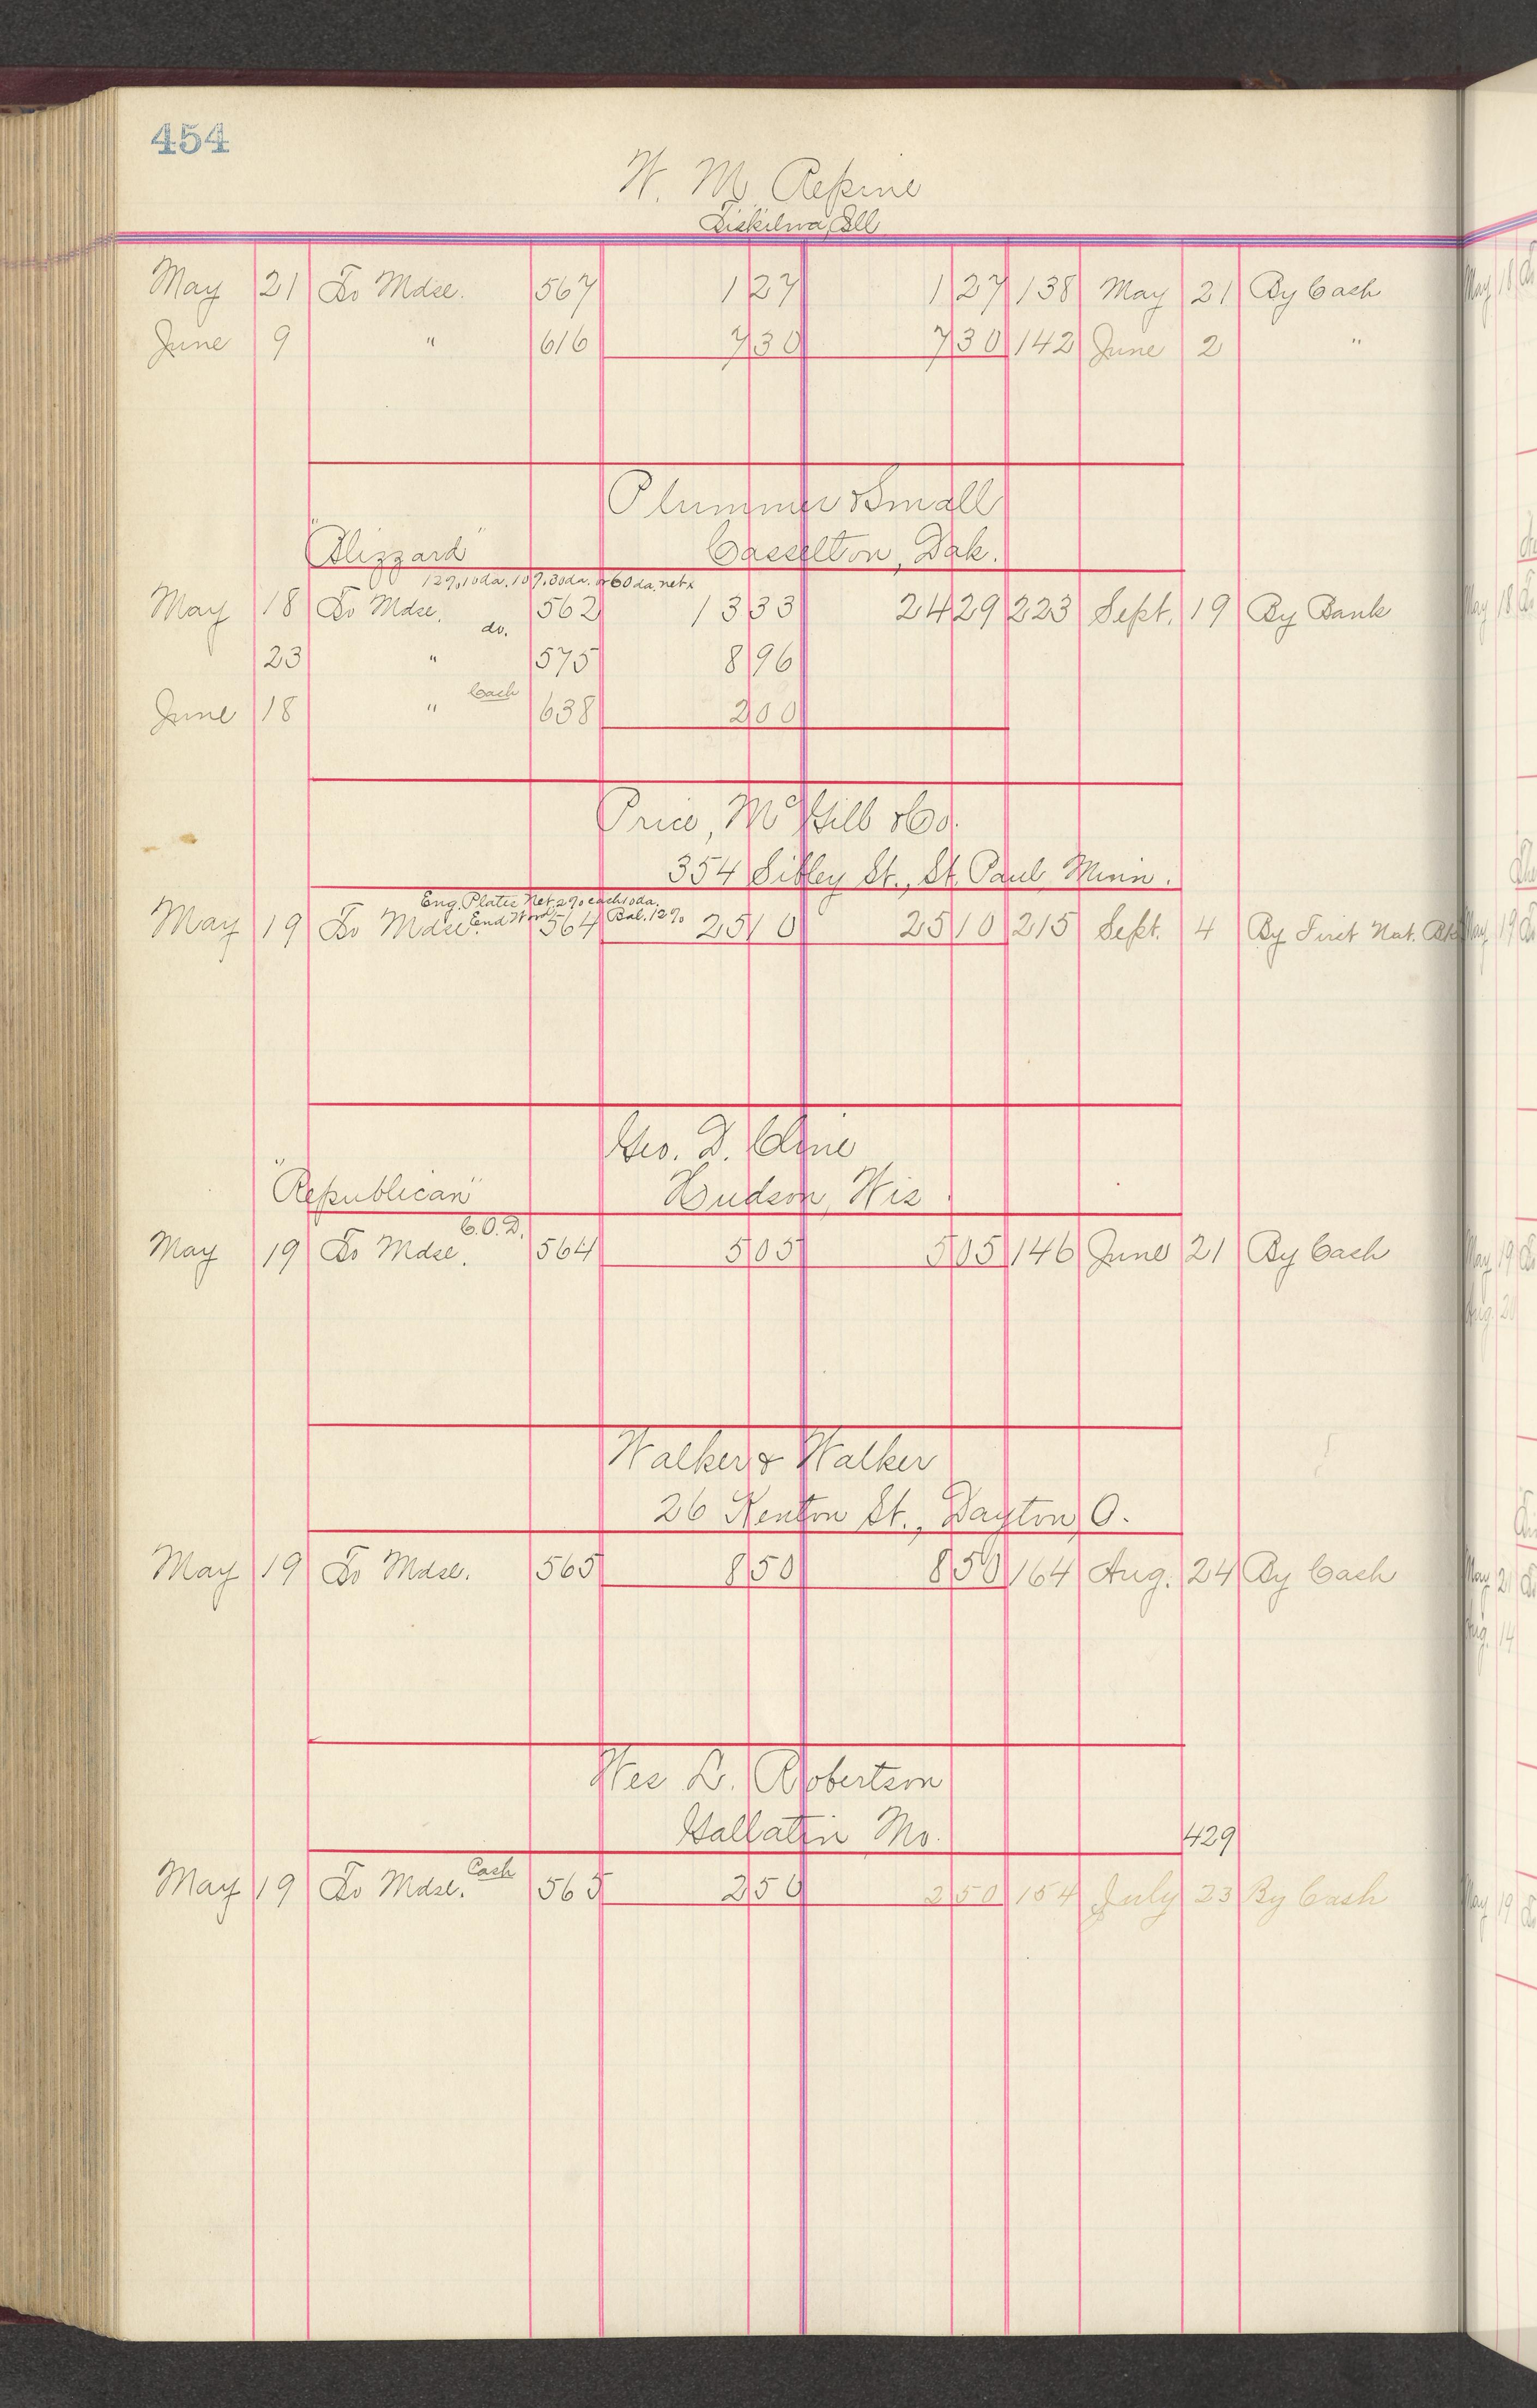 454
W. M. Repine
Tiskilwa, Ill
May 21 To Mdse. 567 1 27 1 27 138 May 21 By Cash
June 9 " 616 7 30 7 30 142 June 2 "
Plummer & Small
"Blizzard" Casselton, Dak.
12%10da. 10%30da. or 60 da. net
May 18 To Mdse. 562 13 33 24 29 223 Sept. 19 By Bank
do.
23 " 575 8 96
June 18 " Cash 638 2 00
Price, McGill & Co.
354 Sibley St., St. Paul, Minn.
Eng. Plates Net. 2% cash 10da.
May 19 To Mdse. End Wood 564 Bal. 12% 25 10 25 10 215 Sept. 4 By First Nat. Bk
Geo. D. Cline
"Republican" Hudson, Wis.
C.O.D.
May 19 To Mdse. 564 5 05 5 05 146 June 21 By Cash
Walker & Walker
26 Kenton St., Dayton, O.
May 19 To Mdse. 565 8 50 8 50 164 Aug. 24 By Cash
Wes L. Robertson
Gallatin Mo. 429
May 19 To Mdse. Cash 565 2 50 2 50 154 July 23 By Cash